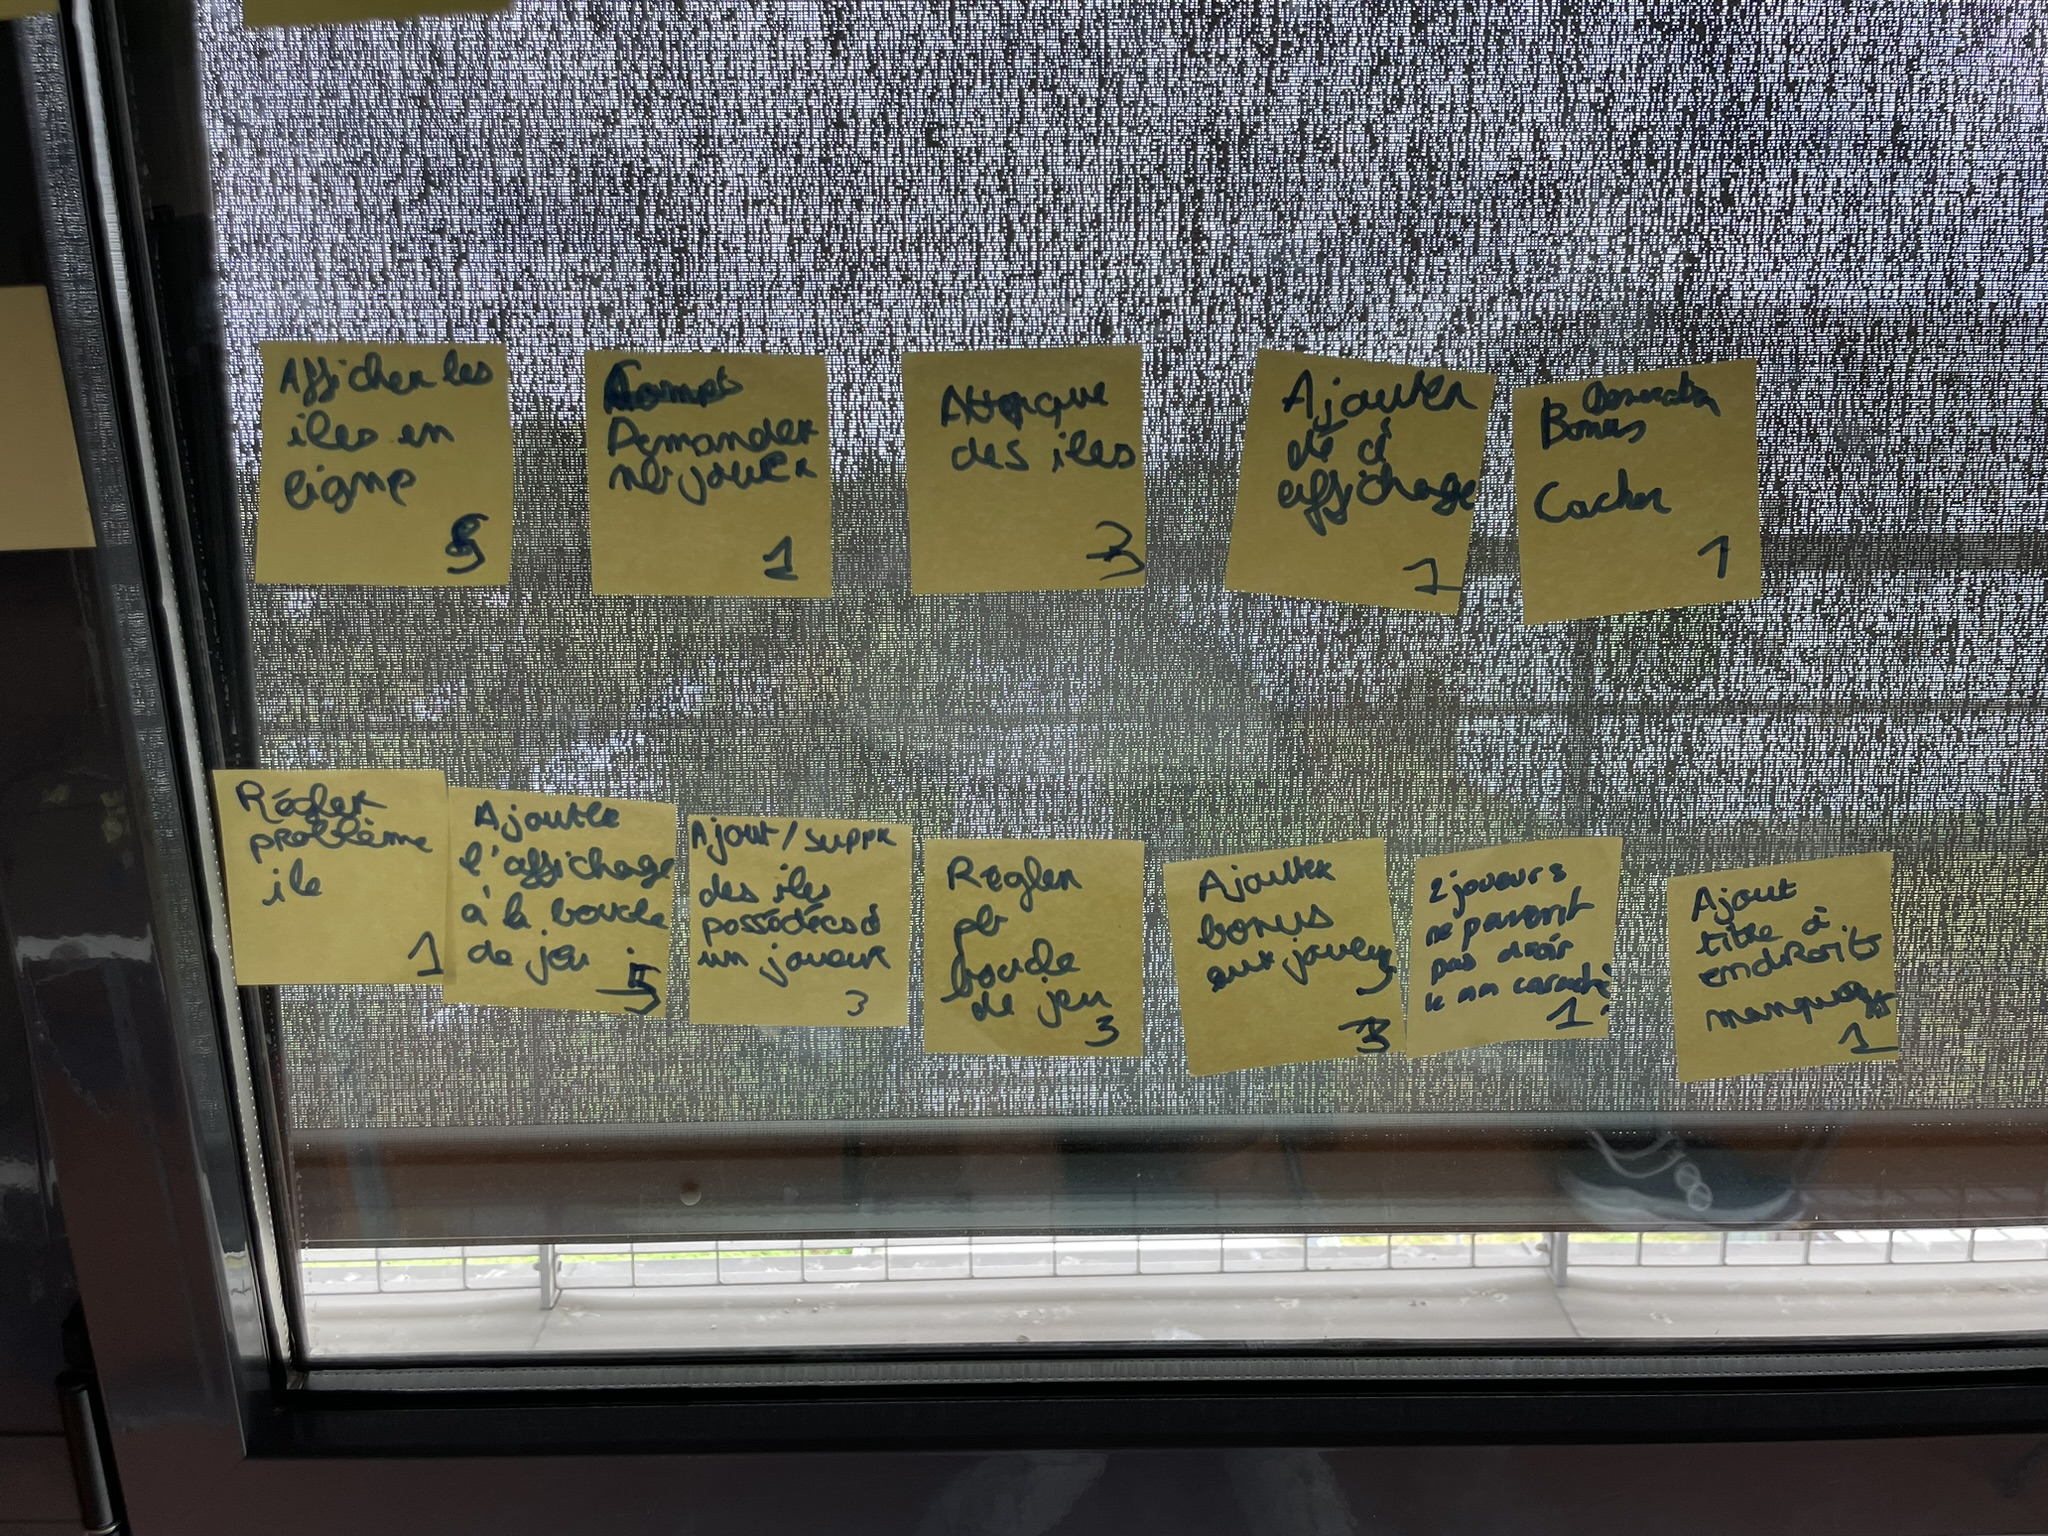 Afficher les
iles en
ligne
5
Demander
nbr jouer
1
Attaque
des iles
3
Ajouter
dé à
affichage
1
Generation
Bonus
Cacher
1
Régler
problème
ile
1
Ajouter
l'affichage
à la boucle
de jeu
5
Ajout/suppr
des iles
possédées à
un joueur
3
Régler
pb
boucle
de jeu
3
Ajouter
bonus
aux joueurs
3
2 joueurs
ne peuvent
pas avoir
le mm
1
Ajout
titre à
endroits
manquants
1